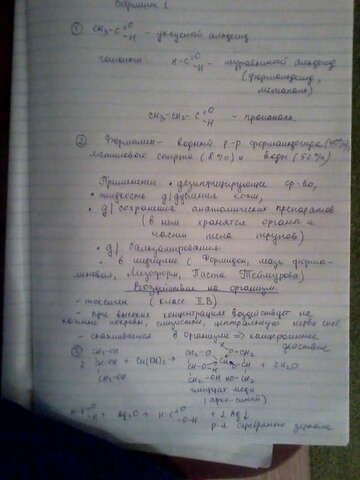 Вариант 1
① CH3-C=O-H - уксусный альдегид
гомологи: H-C=O-H - муравьиный альдегид
(формальдегид,
метаналь)
CH3-CH2-C=O-H - пропаналь
② Формалин - водный р-р формальдегида (40%),
метилового спирта (8%) и воды (52%)
Применение: • дезинфицирующее ср-во,
• жидкость д/дубления кожи,
• д/сохранения анатомических препаратов
(в нем хранятся органы и
части тела трупов)
• д/бальзамирования
• в медицине (Формидон, мазь форма-
линовая, Лизоформ, Паста Теймурова)
Воздействие на организм
- токсичен (класс II B)
- при высоких концентрациях воздействует на
кожные покровы, слизистые, центральную нервн. сист.
- скапливается в организме => канцерогенное
действие
③ CH2-OH CH2-O O-CH2
2 CH-OH + Cu(OH)2 → CH-O Cu O-CH + 2H2O
CH2-OH CH2-OH HO-CH2
глицерат меди
(ярко-синий)
H-C=O-H + Ag2O → H-C=O-OH + 2Ag↓
р-я серебряного зеркала